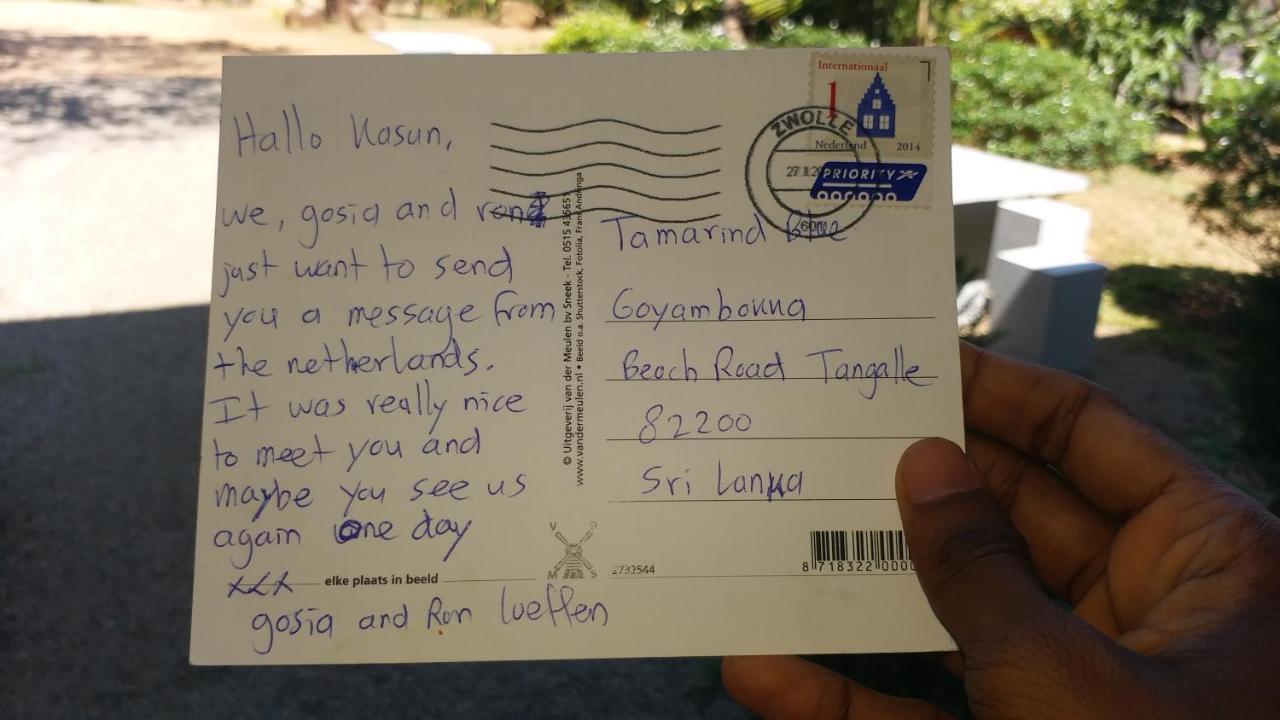 Hallo Kasun,
we, gosia and ron
just want to send
you a message from
the netherlands.
It was really nice
to meet you and
maybe you see us
again one day
xxx
gosia and Ron loeffen
elke plaats in beeld
© Uitgeverij van der Meulen bv Sneek - Tel. 0515 435651
www.vandermeulen.nl • Beeld o.a. Shutterstock, Fotolia, Frans Andringa
V D
M S
Internationaal
1
Nederland 2014
ZWOLLE
PRIORITY
Tamarind Blue
Goyambokka
Beach Road Tangalle
82200
Sri Lanka
2732544
8 718322 0000